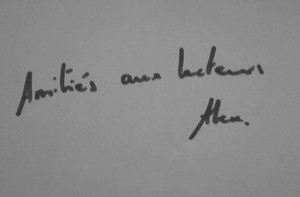 Amitiés aux lecteurs
Alex.